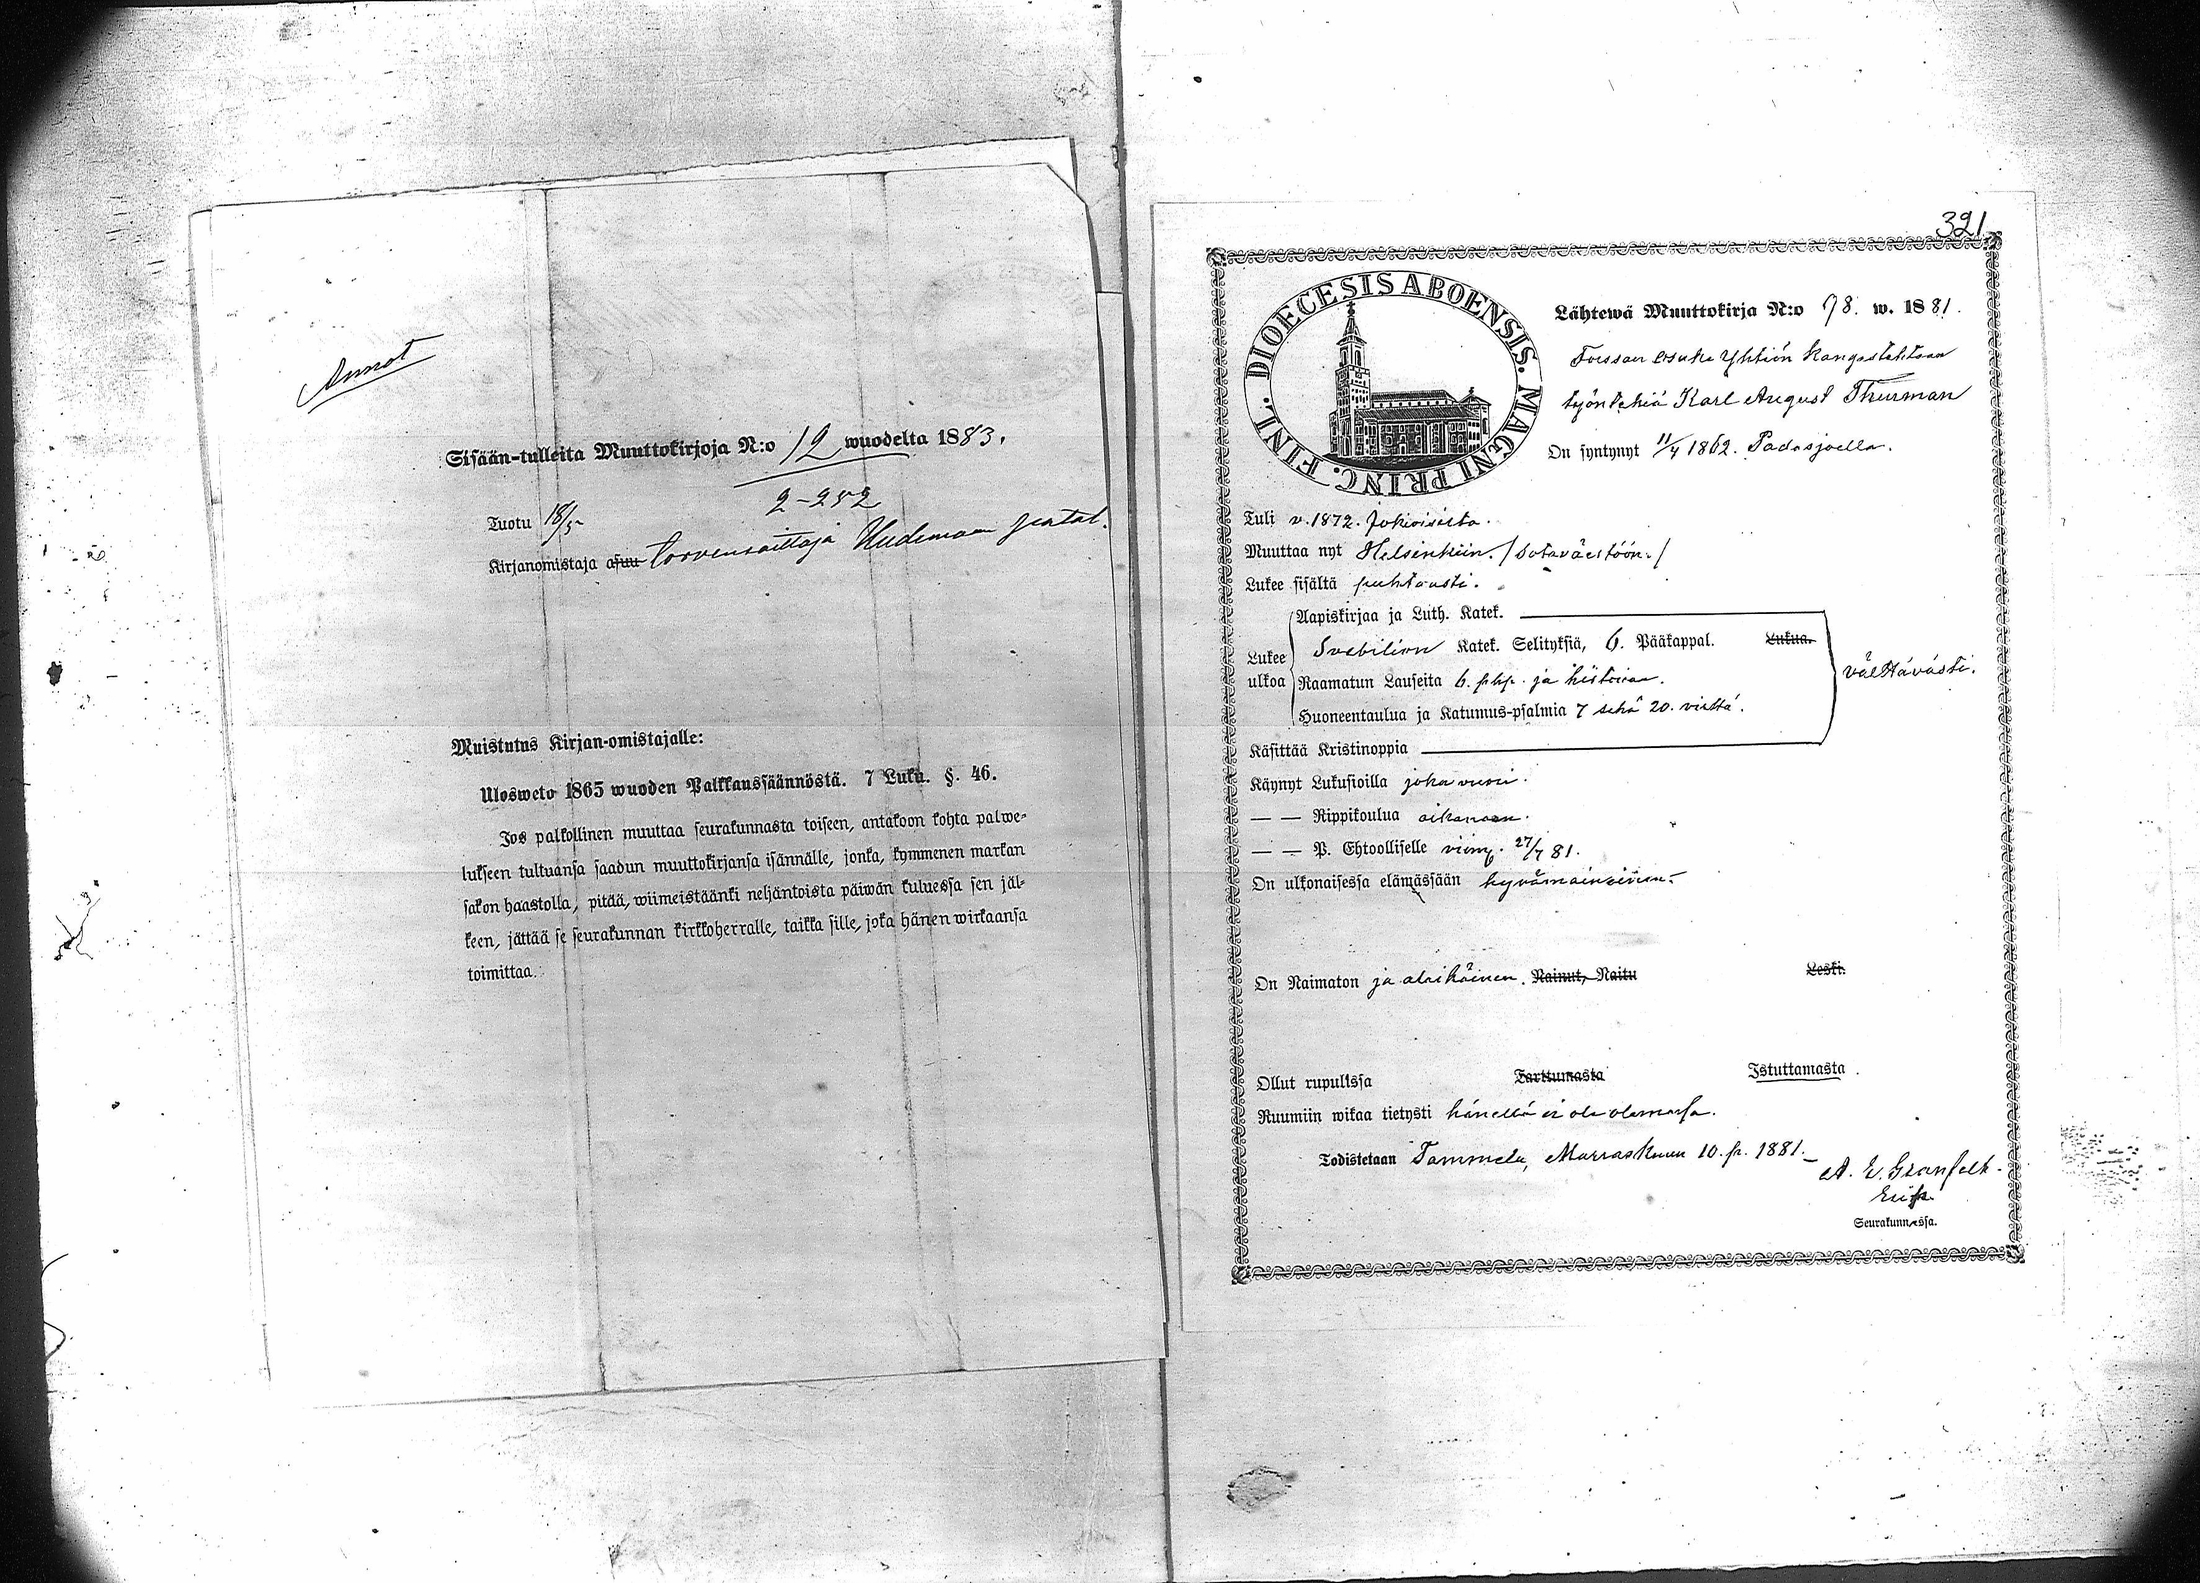 Annot
Sisään-tulleita Muuttokirjoja N:o 12 wuodelta 1883.
2-252
Tuotu 18/5
Kirjanomistaja asuu torvensoittaja Uudenmaan patal.
Muistutus Kirjan-omistajalle:
Ulosweto 1865 wuoden Palkkaussäännöstä. 7 Luku. §. 46.
Jos palkollinen muuttaa seurakunnasta toiseen, antakoon kohta palwe-
lukseen tultuansa saadun muuttokirjansa isännälle, jonka, kymmenen markan
sakon haastolla, pitää, wiimeistäänki neljäntoista päiwän kuluessa sen jäl-
keen, jättää se seurakunnan kirkkoherralle, taikka sille, joka hänen wirkaansa
toimittaa.
321
DIOECESIS ABOENSIS. MAGNI PRINC. FINL.
Lähtewä Muuttokirja N:o 78. w. 1881.
Forssan osuke Yhtiön Kangastehtaan
työntekiä Karl August Thurman
On syntynyt 11/4 1862. Padasjoella.
Tuli v. 1872. Jokioisista.
Muuttaa nyt Helsinkiin. / Sotaväestöön. /
Lukee sisältä puhtaasti.
Aapiskirjaa ja Luth. Katek.
Lukee ulkoa Svebilion Katek. Selityksiä, 6. Pääkappal. Lukua.
Raamatun Lauseita 6. pkp. ja historian. välttävästi.
Huoneentaulua ja Katumus-psalmia 7 sekä 20. virttä.
Käsittää Kristinoppia
Käynyt Lukusioilla joka vuosi.
— — Rippikoulua aikanaan.
— — P. Ehtoolliselle viim. 27/7 81.
On ulkonaisessa elämässään hyvämaineinen.
On Naimaton ja alaikäinen. Nainut, Naitu Leski.
Ollut rupulissa Tarttumasta Istuttamasta
Ruumiin wikaa tietysti hänellä ei ole olemassa.
Todistetaan Tammela, Marraskuun 10. p. 1881.
A. E. Granfelt.
Seurakunnassa.